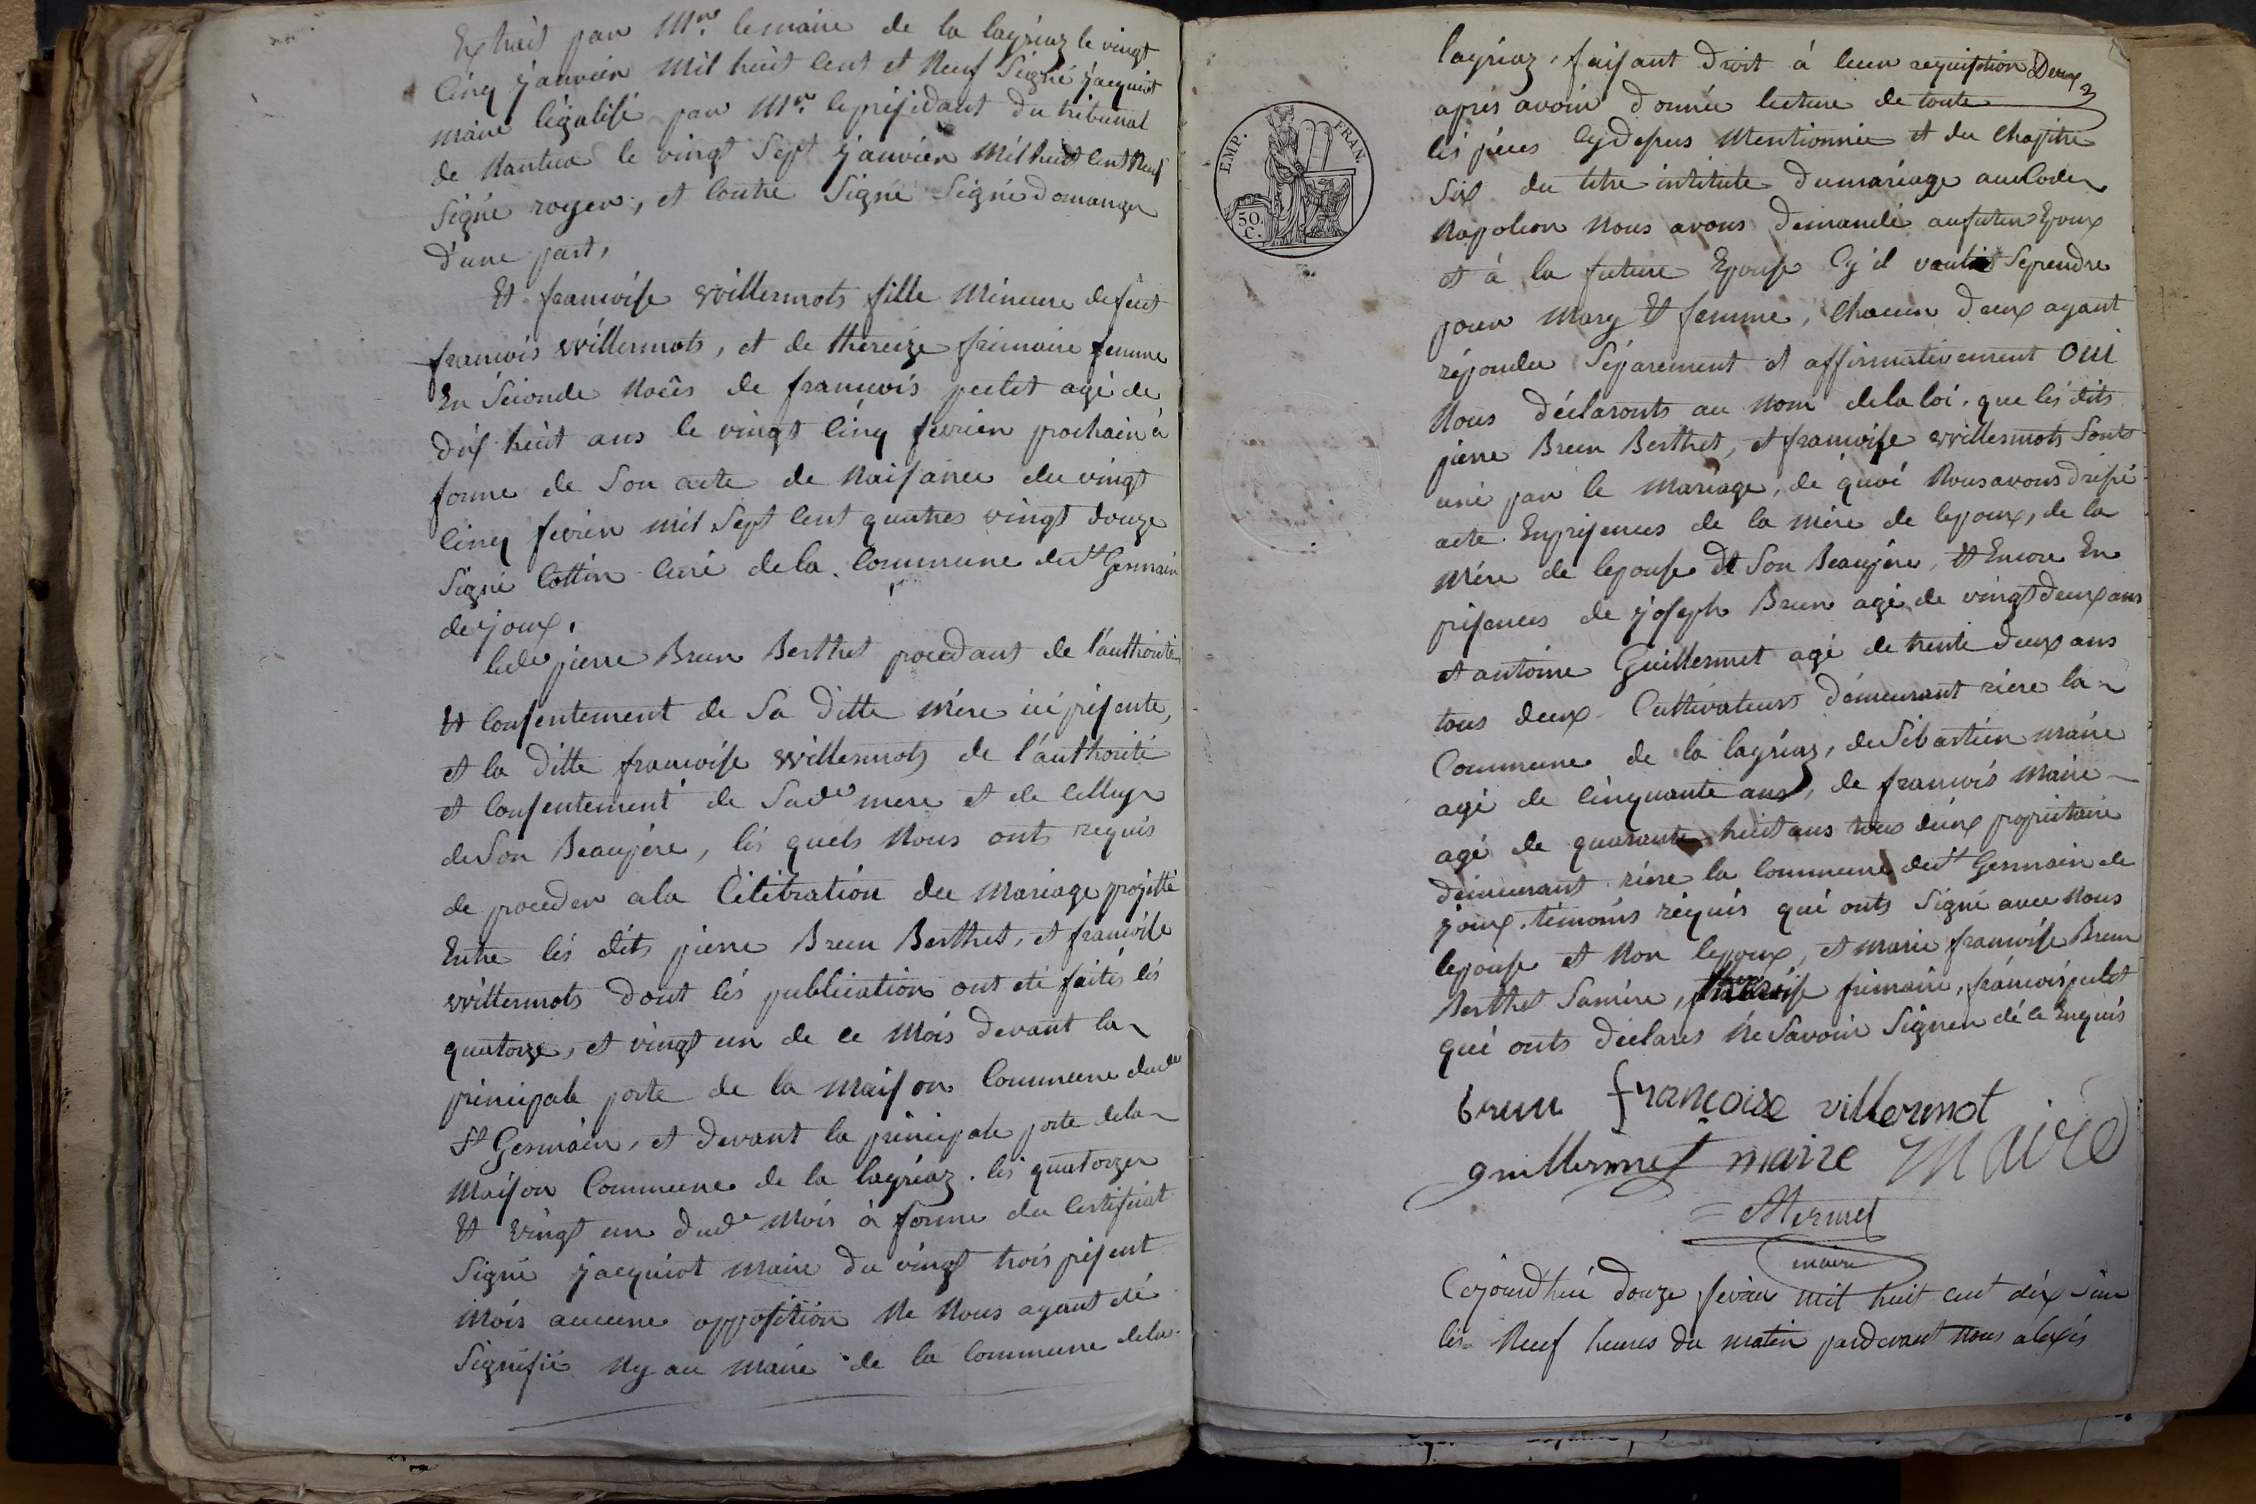 Extrait par Mre. lemaire de la layriaz le vingt
Cinq janvier Mil huit Cent et Neuf Signé jacquiot
maire légalisé par Mr. le président du tribunal
de Nantua le vingt Sept janvier Mil huit Cent Neuf
Signé royer, et Contre Signé Signé Domange
d'une part,
Et francoise willermots fille Mineure defeut
francois willermots, et de thereize frimaire femme
En Séconde Noces de francois peclet agé de
dix huit ans le vingt Cinq fevrier prochain à
forme de Son acte de Naisance du vingt
Cinq fevrier mil Sept Cent quatres vingt douze
Signé Cottin Curé dela Commune de St Germain
de joux.
Ledt pierre Brun Berthet procédant de l'authorité
Et Consentement de Sa ditte Mére ici présente,
et la ditte francoise willermots de l'authorité
et Consentement de Sadte mere et de Celluy
de Son Beaupére, les quels Nous ont requis
de proceder ala Célébration du Mariage projetté
Entre lés dits pierre Brun Berthet, et francoise
willermots dont lés publication ont été faités lés
quatorze, et vingt un de ce Mois devant la
principale porte de la Maison Commune dudt
St Germain, et devant la principale porte dela
Maison Commune de la layriaz. les quatorze
Et Vingt un dudt Mois à forme du Certificat
Signé jacquiot Maire du vingt trois présent
Mois aucune opposition Ne Nous ayant été
Signifié Ny au Maire de la Commune dela
layriaz, faisant Droit à leur requisition
aprés avoir donnée lecture de toute
lés piéces Cydessus Mentionnée et du Chapitre
Six du titre intitule Dumariage au Code
Napoleon Nous avons Demandé aufutur Epoux
et à la future Epouse Cy'il Seprendre
pour Mary Et femme, Chacun d'eux ayant
répondu Séparement et affirmativement OUI
Nous déclaronts au Nom dela loi, que lés dits
pierre Brun Berthet, et francoise willermots Sont
uni par le Mariage, de quoi Nous avons dréssé
acte. En présences de la Mére de lepoux, de la
Mére de lepouse Et Son Beaupére, Et Encore En
présences de joseph Brun agé de vingt deux ans
et antoine Guillermet agé de trente deux ans
tous deux Cultivateurs démeurant riere la
Commune de la layriaz, de Sébastien maire
agé de Cinquante ans, de francois Maire
agé de quarante huit ans tous deux propriétaire
démeurant riére la Commune de St Germain de
joux. témoins réquis qui onts Signé avec Nous
lepouse et Non lepoux, et Marie francoise Brun
Berthet Samére, frimaire, francois peclet
qui onts déclares Ne Savoir Signer dé ce Enquis
brun françoise villermot
guillermet maire Maire
Mermet
maire
Cejourd'hui douze fevrier mil huit cent dix Sur
les Neuf heures du matin pardevant nous aléxis